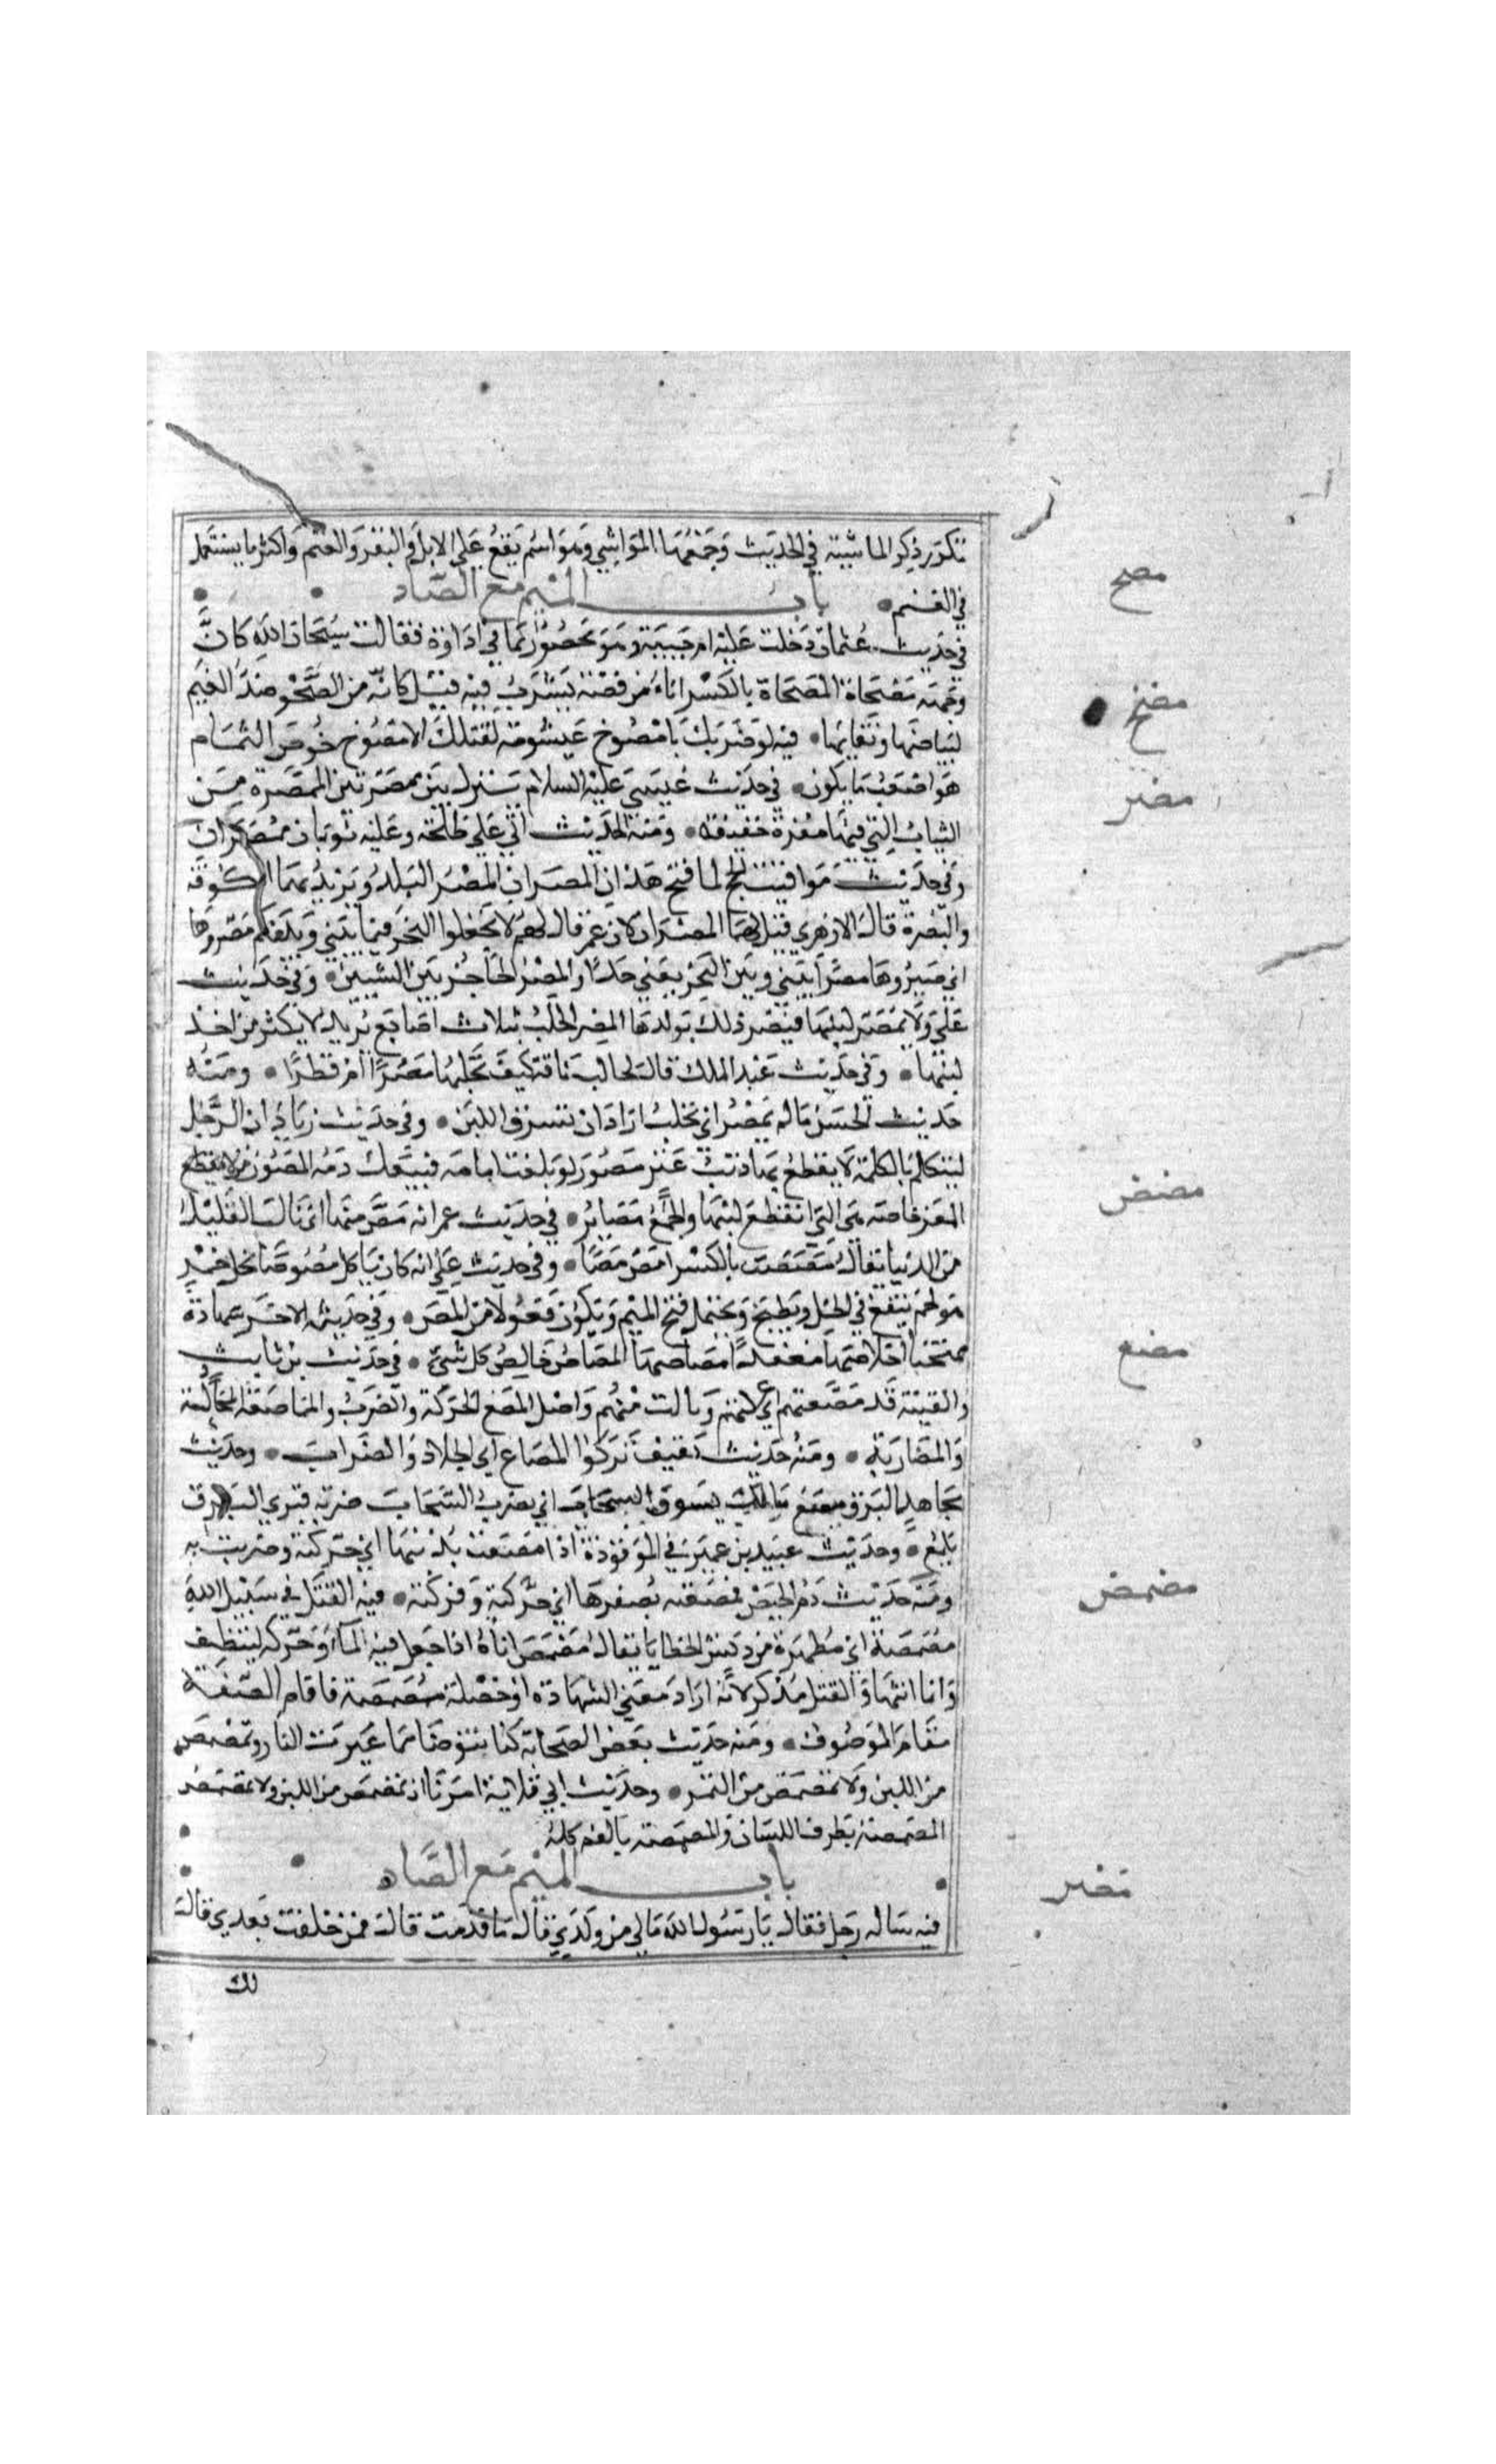 تكرر ذكر الماشية في الحديث وجمعها المواشي وهو اسم يقع على الابل والبقر والغنم واكثر ما يستعمل
في الغنم • باب الميم مع الصاد
مصح
في حديث عثمان دخلت عليه ام حبيبة وهو محصور بما في اداوة فقالت سبحان الله كان
وجهه مصحاة المصحاة بالكسر اناء من فضة يشرب فيه قيل كانه من الصحو ضد الغيم
مصخ
لبياضها ونقايها • فيه لو ضربك بامصوخ عيشومة لقتلك الامصوخ خوص الثمام
مصر
هو اضعف ما يكون • في حديث عيسى عليه السلام ينزل بين ممصرتين الممصرة من
الثياب التي فيها صفرة خفيفة • ومنه الحديث اتى علي طلحة وعليه ثوبان ممصران
وفي حديث مواقيت الحج لما فتح هذان المصران المصر البلد ويريد بهما الكوفة
والبصرة قال الازهري قيل لهما المصران لان عمر قال لهم لا تجعلوا البحر فيما بيني وبينكم مصروها
اي صيروها مصرا بيني وبين البحر يعني حدا والمصر الحاجز بين الشيئين • وفي حديث
علي ولا يمصر لبنها فيضر ذلك بولدها المصر الحلب بثلاث اصابع يريد لا يكثر من اخذ
لبنها • وفي حديث عبد الملك قال لحالب ناقته كيف تحلبها مصرا ام فطرا • ومنه
حديث الحسن ماله يمصر اي تحلب اراد ان تسرق اللبن • وفي حديث زياد ان الرجل
ليتكلم بالكلمة لا يقطع بها ذنب عنز مصور لو بلغت امامه فيسفك دمه المصور من
المعز خاصة هي التي انقطع لبنها والجمع مصاير • في حديث عمر انه مص منها اي نال القليل
مصص
من الدنيا يقال مصصت بالكسر امص مصا • وفي حديث علي انه كان ياكل مصوصا بخل خمر
هو لحم ينقع في الخل ويطبخ ويحتمل فتح الميم ويكون فعولا من المص • وفي حديثه الاخر شهادة
ممتحنا اخلاصها معتقدا مصاصها المصاص خالص كل شئ • في حديث بن ثابت
مصع
والفتنة قد مصعتهم اي عركتهم ونالت منهم واصل المصع الحركة والضرب والمماصعة المجالدة
والمضاربة • ومنه حديث ثقيف تركوا المصاع اي الجلاد والضراب • وحديث
مجاهد البرق مصع ملك يسوق السحاب اي يضرب السحاب ضربة فيرى البرق
يلمع • وحديث عبيد بن عمير في الموقوذة اذا مصعت بذنبها اي حركته وضربت به
ومنه حديث دم الحيض فمصعته بظفرها اي حركته وفركته • فيه القتل في سبيل الله
مصمص
مصمصة اي مطهرة من دنس الخطايا يقال مصمص اناءه اذا جعل فيه الماء وحركه ليتنظف
وانما انثها والقتل مذكر لانه اراد معنى الشهادة او خصلة مصمصة فاقام الصفة
مقام الموصوف • ومنه حديث بعض الصحابة كنا نتوضا مما غيرت النار ونمصمص
من اللبن ولا نمصمص من التمر • وحديث ابي قلابة امرنا ان نمصمص من اللبن ولا نمضمض
المصمصة بطرف اللسان والمضمضة بالفم كله
باب الميم مع الضاد
مضر
فيه ساله رجل فقال يا رسول الله مالي من ولدي قال ما قدمت قال فمن خلفت بعدي قال
لك